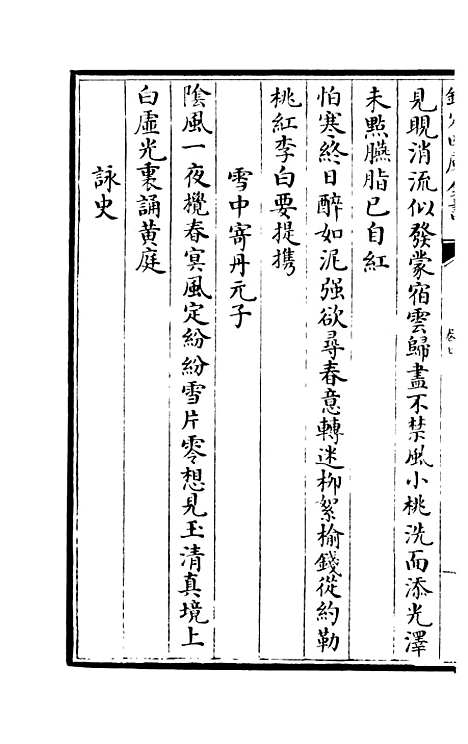 見晛消流似發蒙宿雲歸盡不禁風小桃洗面添光澤
未㸃臙脂已自紅
怕寒終日醉如泥强欲尋春意轉迷柳絮榆錢從約勒
桃紅李白要提攜
雪中寄丹元子
隂風一夜攪春㝠風定紛紛雪片零想見玉清真境上
白虛光裏誦黄庭
詠史